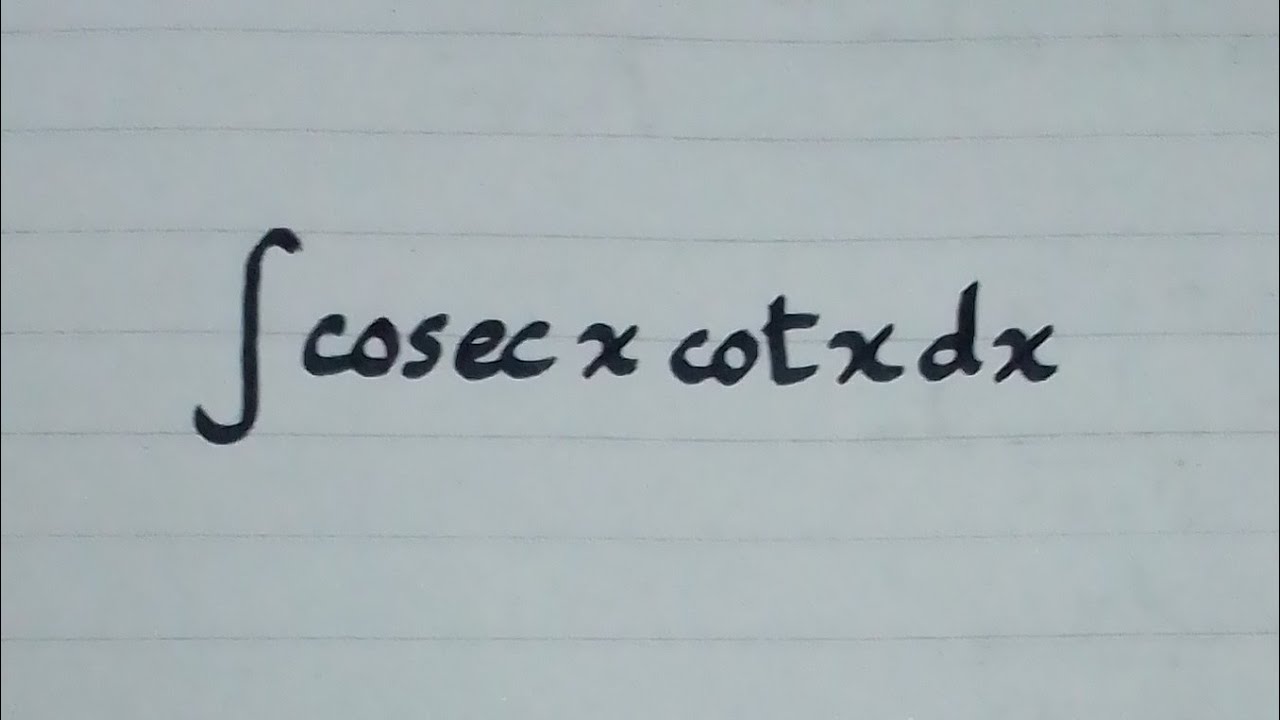 ∫ cosec x cot x dx